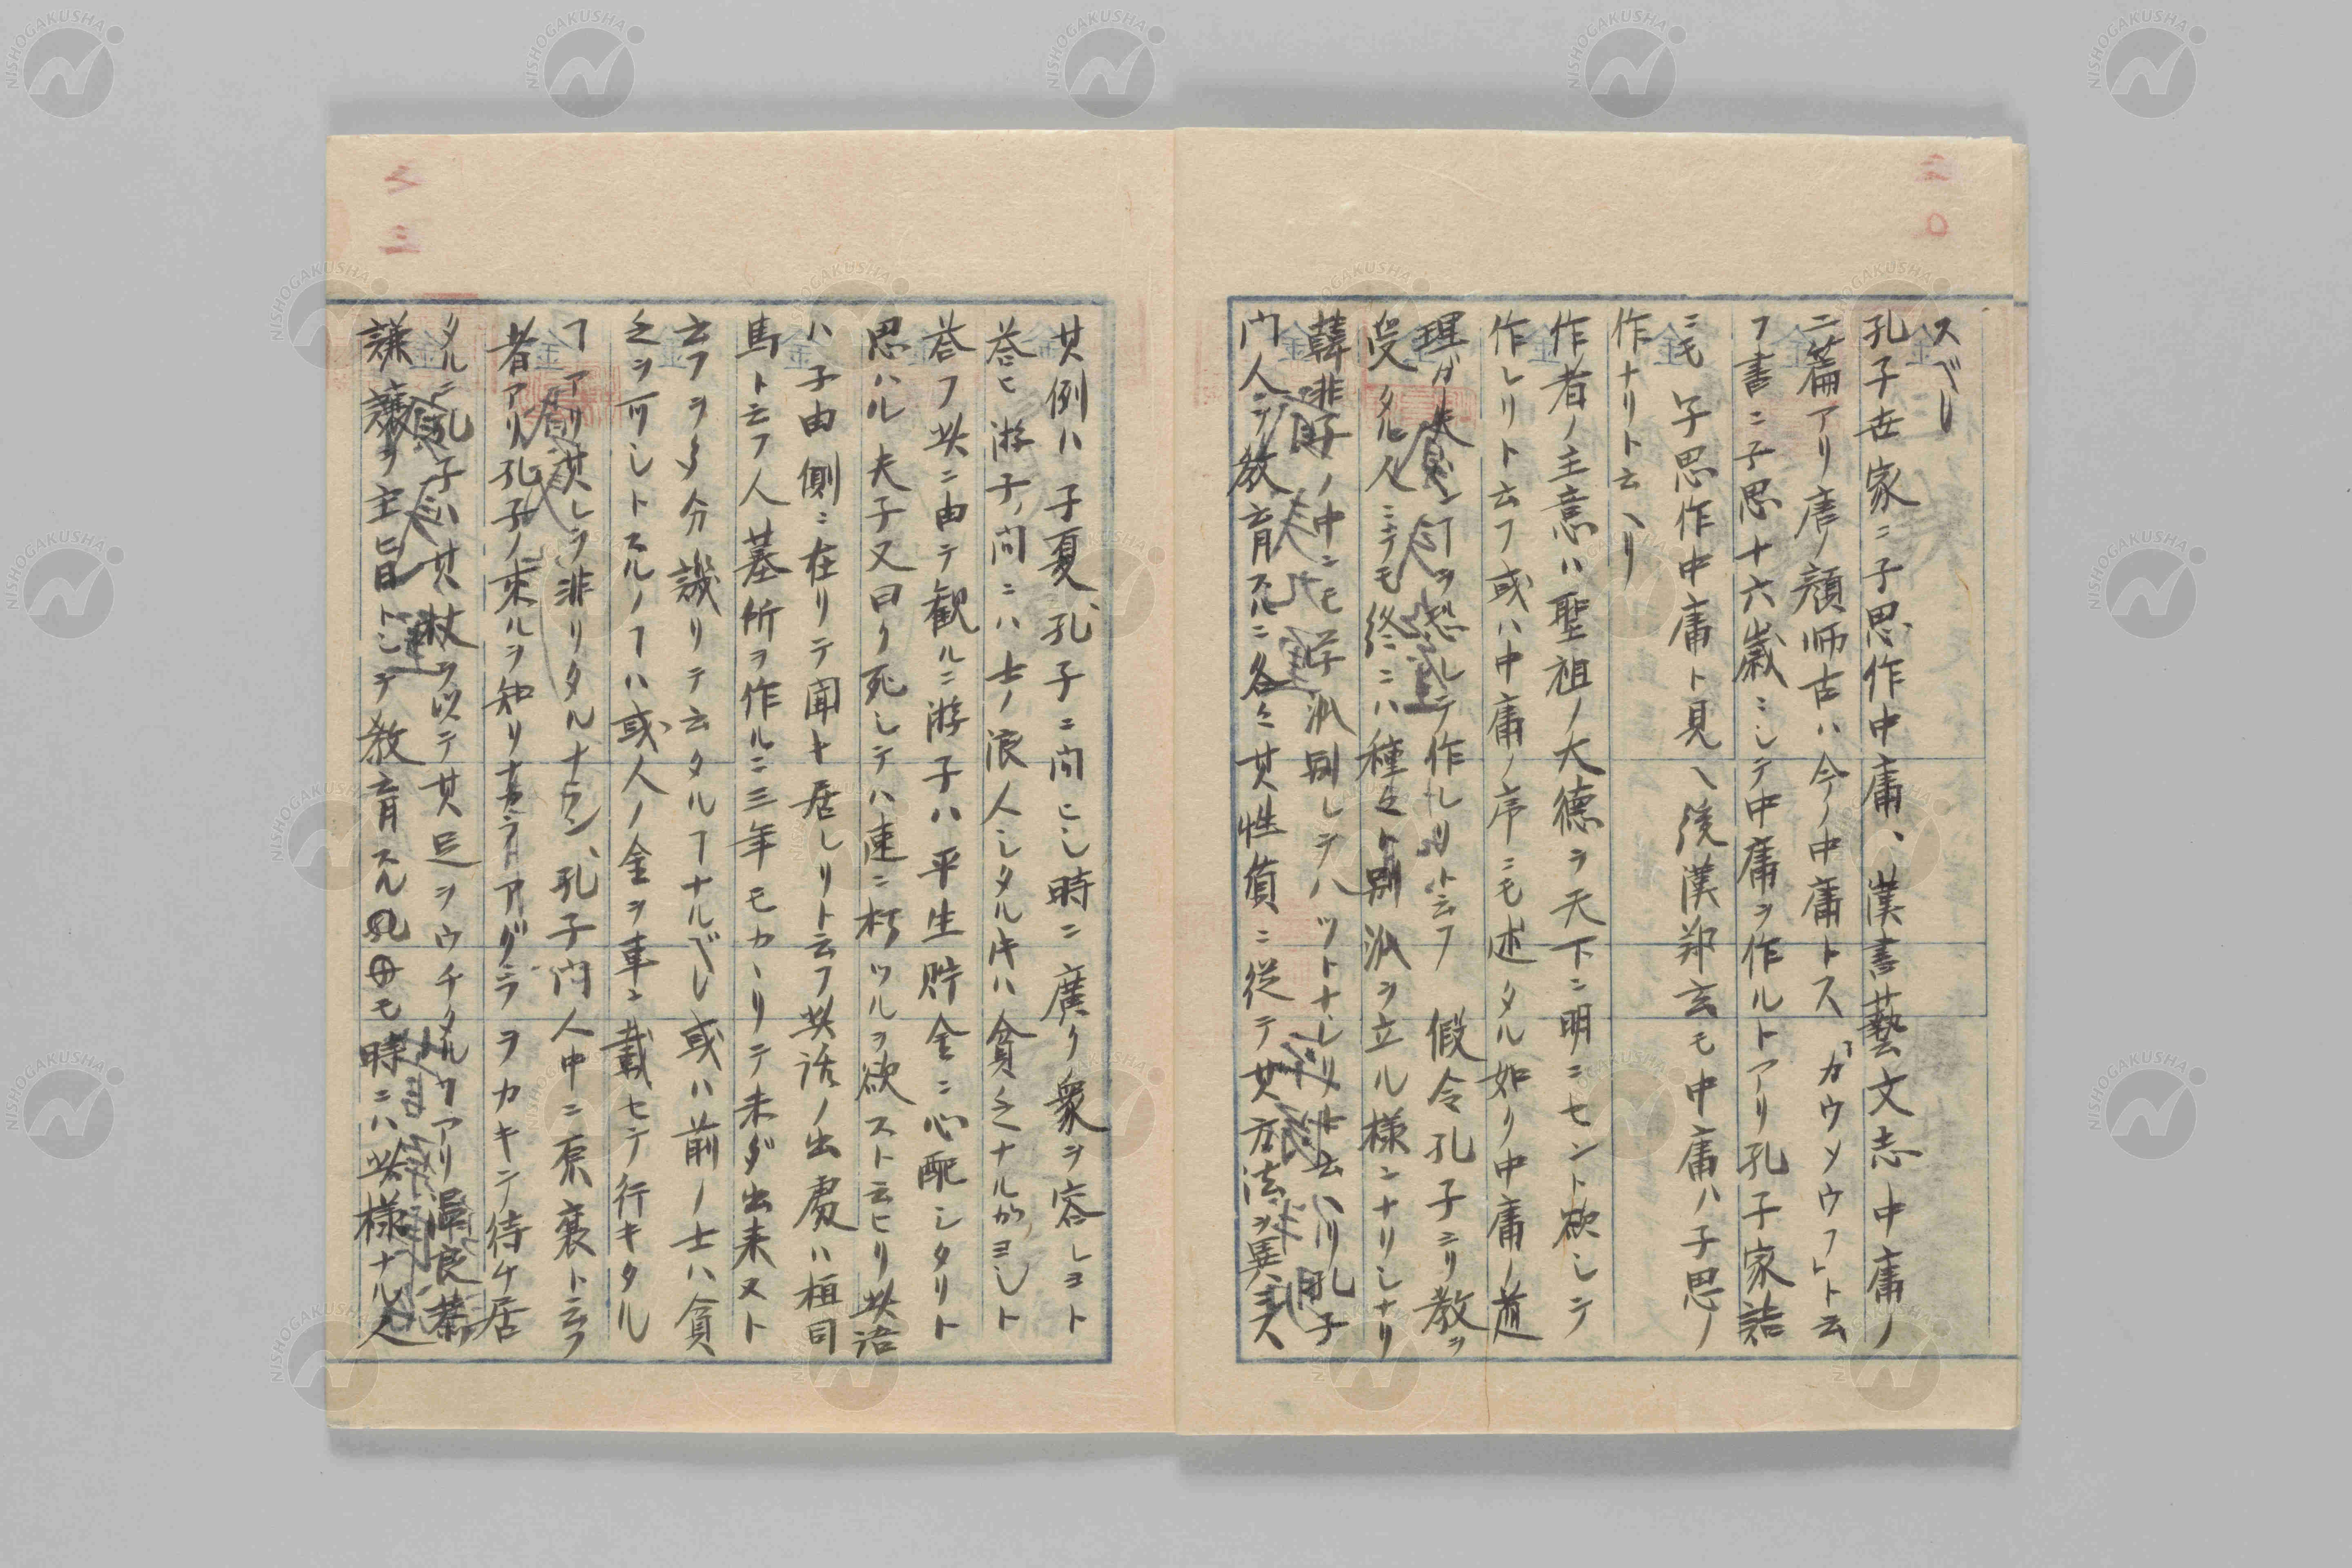 スベし
孔子世家ニ子思作中庸、漢書藝文志中庸ノ
二篇アリ唐ノ顔師古ハ今ノ中庸トス「カウソウフ」ト云
フ書ニ子思十六歳ニシテ中庸ヲ作ルトアリ孔子家語
ニモ子思作中庸ト見ヘ後漢郑玄モ中庸ハ子思ノ
作ナリト云ヘリ
作者ノ主意ハ聖祖ノ大德ヲ天下ニ明ニセント欲シテ
作レリト云フ或ハ中庸ノ序ニモ述タル如ク中庸ノ道
理ガ失ンヿヲ恐レテ作レリト云フ 假令孔子ヨリ教ヲ
受タル人ニテモ終ニハ種々ト別派ヲ立ル様ニナリシナリ
韓非子ノ中ニモ 派別レテ八ツトナレリト云ヘリ孔子
門人ヲ教育スルニ各々其性質ニ従テ其方法ヲ異ニス
其例ハ子夏孔子ニ問ヒシ時ニ廣ク衆ヲ容レヨト
答ヒ游子ノ問ニハ士ノ浪人シタル片ハ貪乏ナルガヨシト
答フ此ニ由テ観ルニ游子ハ平生貯金ニ心配シタリト
思ハル夫子又曰ク死シテハ速ニ朽ツルヲ欲スト云ヒリ此語
ハ子由側ニ在リテ聞ト居レリト云フ此話ノ出處ハ桓司
馬ト云フ人墓所ヲ作ルニ三年モカヽリテ未ダ出来ヌト
云フヲ多分譏リテ云タルヿナルベし或ハ前ノ士ハ貪
乏ヲ可シトスルノヿハ或人ノ金ヲ車ニ載セテ行キタル
ヿアリ其レヲ非リタルナラン、孔子門人中ニ原襄ト云フ
者アリ孔子ノ來ルヲ知リナガラアグラヲカキテ待ケ居
タルニ孔子ハ其杖ヲ以テ其足ヲウチタルヿアリ温良恭
謙譲ヲ主旨トシテ教育スル孔子モ時ニハ此様ナル